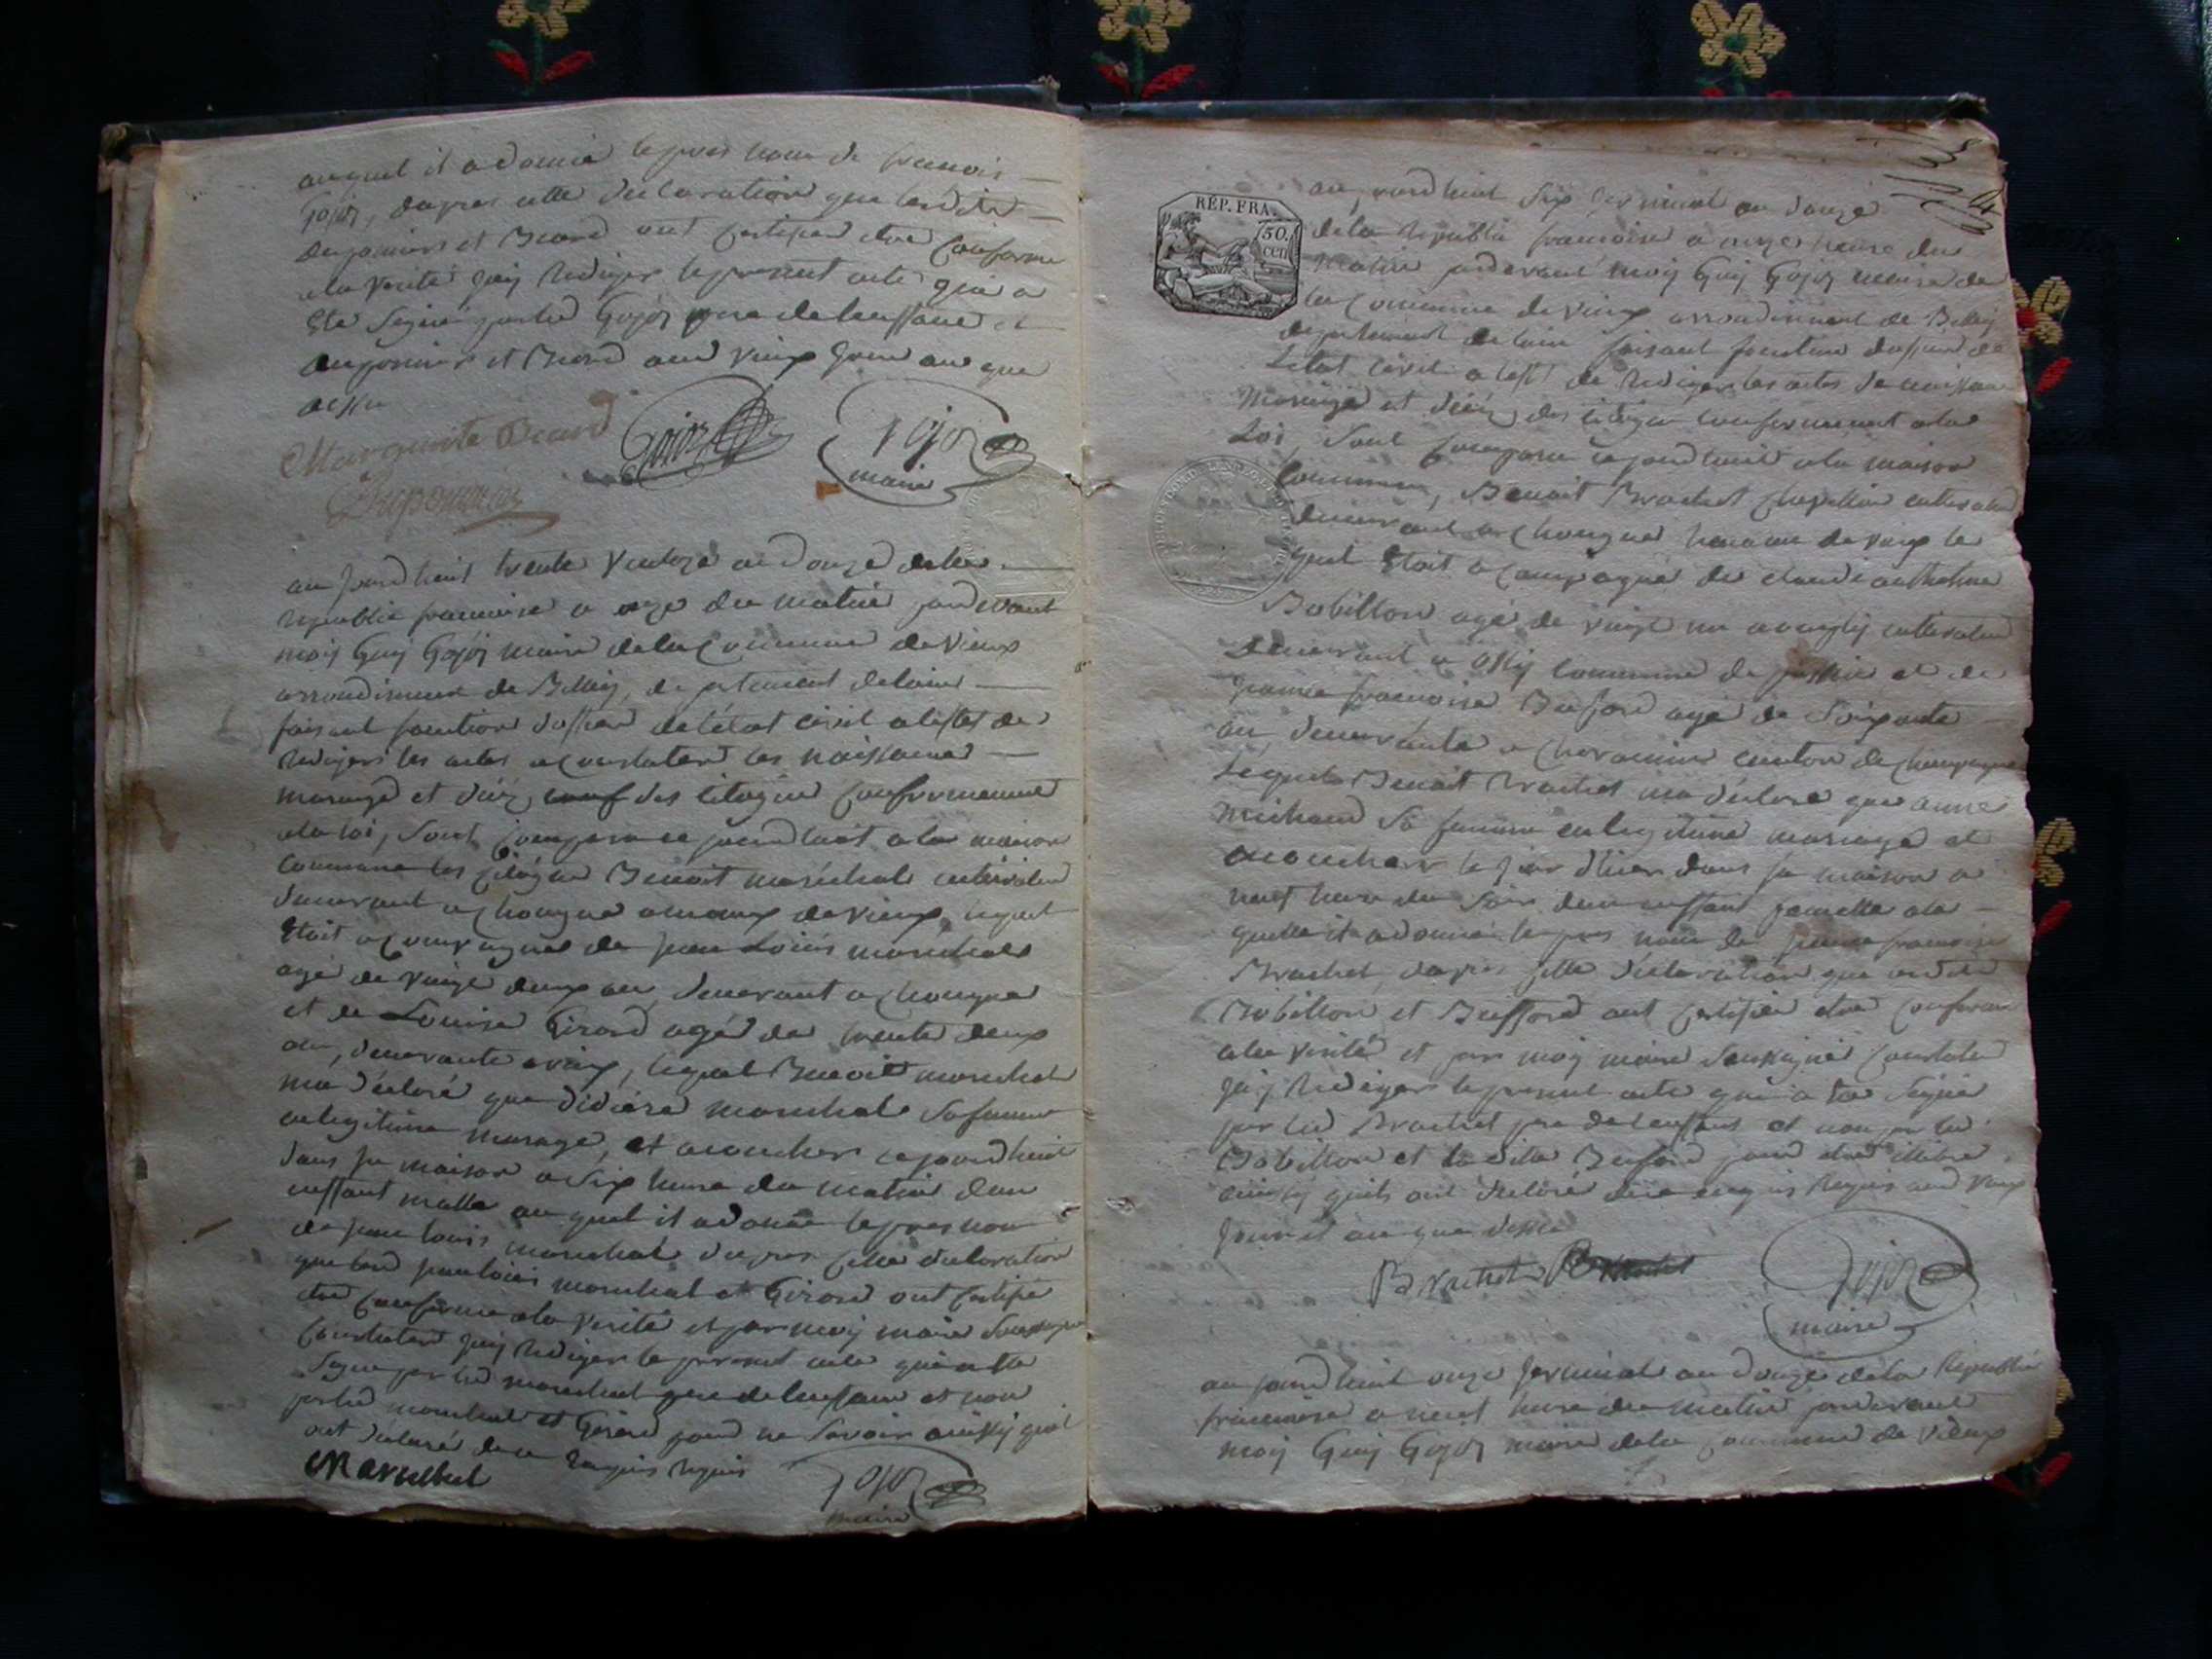 auquel il a donné le pres nom de francois
Gojoz, dapres cette declaration que lesdits
duponnier et Beard ont certifier etre conforme
a la verité jay rediger le present acte qui a
Ete Signé par led Gojoz pere de lenffant et
duponnier et Beard aud vieux jour an que
dessu
Marguerite Beard
Gojoz
Gojoz
maire
Duponnier
au jourd huit trente Ventoze an douze de la
republic francoise a onze du matin pardevant
moij Guij Gojoz maire de la commune de vieux
arrondiment de Belley, departement de lain
faisant fonction doffier de létat civil a leffet de
rediger les actes a constater les naissance
mariage et déces des citoyen conformement
a la loi, sont comparu ce jourd huit a la maison
commune les citoyen Benoit maréchal cultivateur
demeurant a chongne de vieux lequel
Etoit acompagné de jean Loüis marechal
agé de vingt deux an, demeurant a chongne
et de Louise Girard agé de trente deux
an, demeurante a vieux, lequel Benoit marechal
ma déclaré que didiere marechal sa femme
en legitime mariage, et acoucher ce jourd huit
dans sa maison a six heure du matin dun
enffant malle auquel il a donné le pres nom
de jean louis marechal dapres cette declaration
que led jean louis marechal et Girard ont certifié
etre conforme a la verité et par moij maire Soussigné
constater jay rediger le present acte qui a Ete
Signé par led marechal pere de lenffant et non
par led marechal et Girard pour ne savoir ainssij quil
ont déclaré de ce enquis requis
Marechal
Gojoz
maire
RÉP. FRA.
50.
cen
au jourd huit six germinal an douze
de la republic francoise a onze heure du
matin pardevant moij Guij Gojoz maire de
la commune de vieux arrondiment de Belley
departement de lain faisant fonction doffier de
Létat civil a leffet de rediger les actes de naissance
Mariage et déces des citoyen conformement a la
Loi, sont comparu ce jourd huit a la maison
commune, Benoit Brachet cultivateur
demeurant a chongne de vieux le
quel Etoit acompagné de claude anthelme
Bobillon agé de vingt un cultivateur
demeurant a commune de et de
francoise agé de soixante
an demeurante a canton de champagne
Lequel Benoit Brachet ma déclaré que anne
michaud sa femme en legitime mariage et
acoucher le jour dhier dans sa maison a
neuf heure du soir dun enffant femelle a la
quelle il a donné le pres nom de francoise
Brachet, dapres cette déclaration que lesdit
Bobillon et ont certifier etre conforme
a la verité et par moij maire soussigné constater
jay rediger le present acte qui a Ete signé
par led Brachet pere de lenffant et non par led
Bobillon et ladite pour etre illitére
ainssij quils ont déclaré de ce enquis requis aud vieux
jour et an que dessu
Brachet
Gojoz
maire
au jourd huit onze germinal an douze de la republic
francoise a neuf heure du matin pardevant
moij Guij Gojoz maire de la commune de vieux